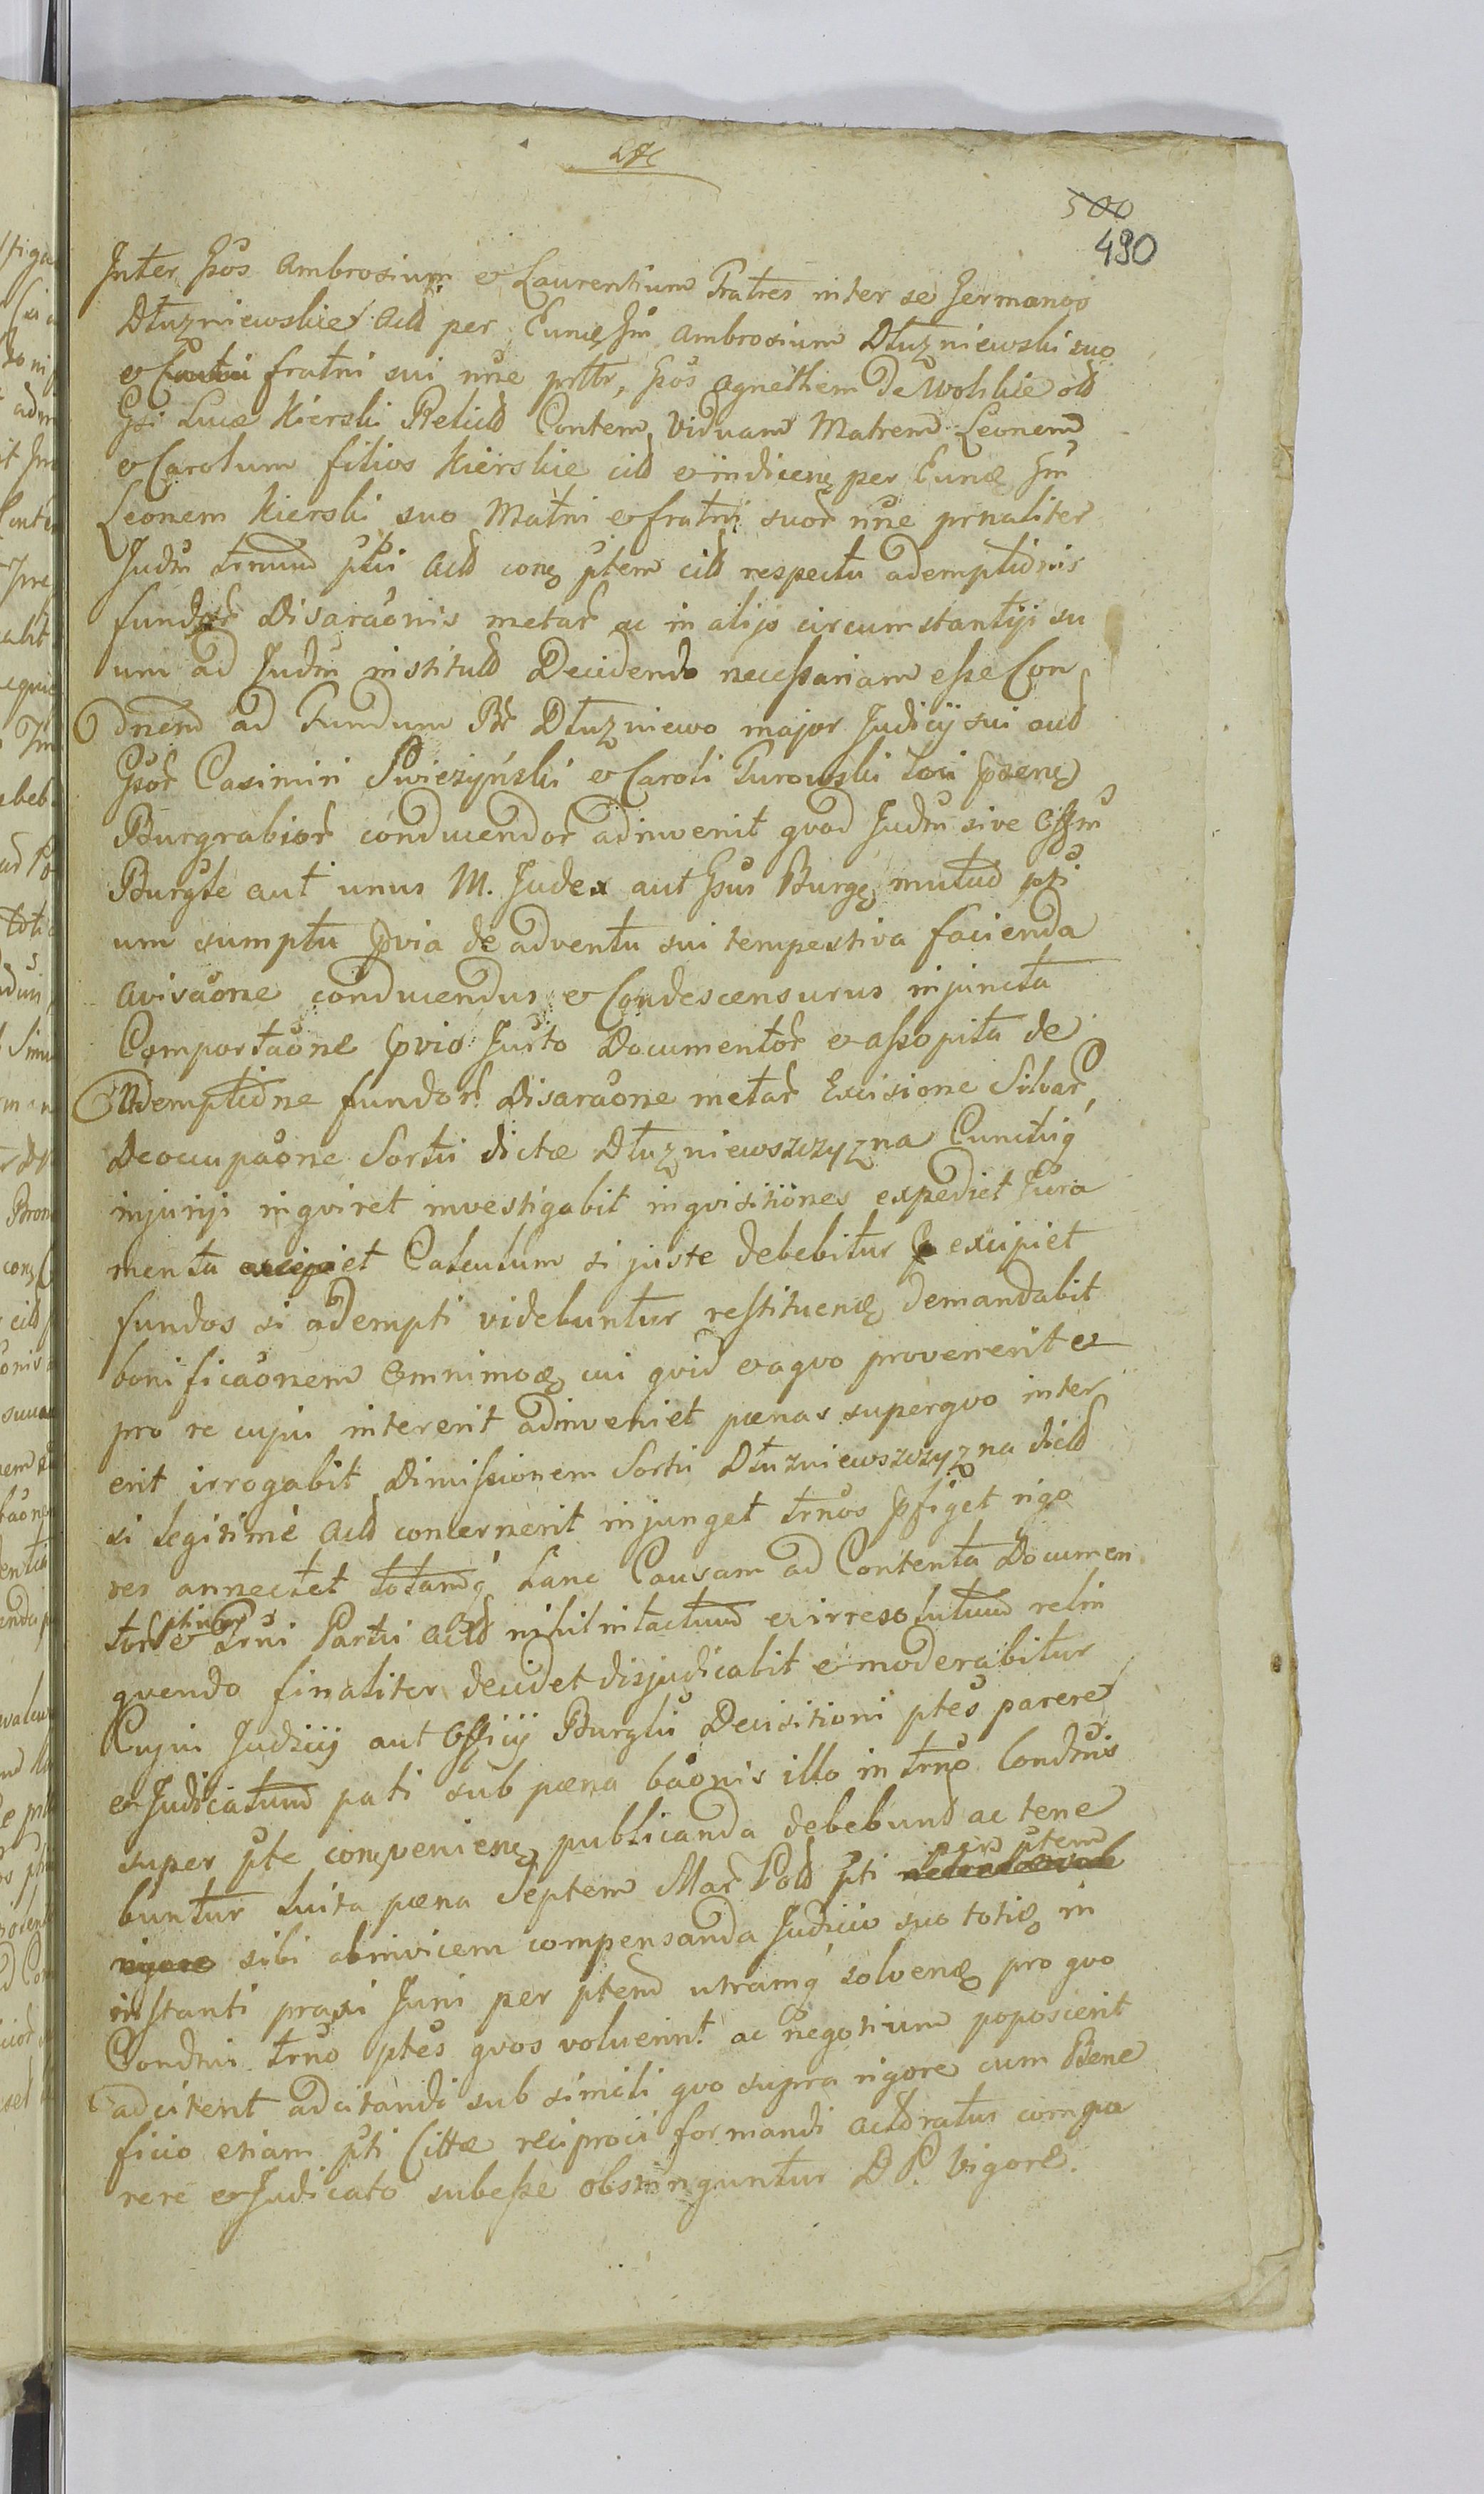 500
490
Inter Gsos Ambrosium et Laurentium Fratres inter se Germanos
Dłuzniewskie Actt per Eunq Gm Ambrosium Dłuzniewski suo
et fratri sui nne prttr, Gsos Agnethem de Wolskie ott
Gsi Lucæ Kierski Relictt Contem Viduam Matrem Leonem
et Carolum filios Kierskie citt et indicenq per Eunq Gm
Leonem Kierski suo Matri et fratri suor nne prnaliter
Judm trnum pti Actt conq ptem citt respectu ademptionis
fundor Disaraonis metar ac in alijs circumstantiji su
um ad Judm institutt Decidendo necessariam esse Con
dnem ad Fundum Br Dłuzniewo major Judicij sui aut
Gsor Casimiri Swiezyński et Caroli Turowski Loci psenq
Burgrabior conducendor adinvenit quod Judm sive Offm
Burgle aut unus M. Judex aut Gsus Burgq mutuo pti
um sumptu pvia de adventu sui tempestiva facienda
avisaone conducendus et Condescensurus injuncta
Comportaone pvio Jurto Documentor et assopita de
Ademptione fundor Disaraone metar Excisione Silvar,
Deoccupaone Sortis dictæ Dłuzniewszczyzna Cunctiq
injuriji inqviret investigabit inqvisitiones expediet Jura
menta excipiet Calculum si juste debebitur excipiet
fundos si adempti videbuntur restituenq demandabit
bonificaonem omnimoq cui qvid et a qvo provenerit et
pro re cujus intererit adinveniet pœnas super qvo inter
erit irrogabit Dimissionem Sortis Dłuzniewszczyzna dictt
si legitimé Actt concernerit injunget trnos pfiget rigo
res annectet totamq hanc Causam ad Contenta Documen
tor et Trni Partis Actt nihil intactum et irresolutum relin
qvendo finaliter decidet disjudicabit et moderabitur
Cujus Judicij aut Officij Burglis Decisitioni ptes parere
et Judicatum pati sub pœna baonis illo in trno Condnis
super pte conqveniens publicanda debebunt ac tene
buntur luita pœna Septem Mar Poll pti per ptem
sibi abinvicem compensanda Judicio suo totiq in
instanti praxi Juris per ptem utramq solvenq pro qvo
Condnis trno ptes qvos voluerint ac negotium poposcerit
adcitent adcitandi sub simili qvo supra rigore cum Bene
ficio etiam pti Cittæ reciproci formandi acttratus compa
rere et Judicato subesse obstringuntur D P. Vigore.